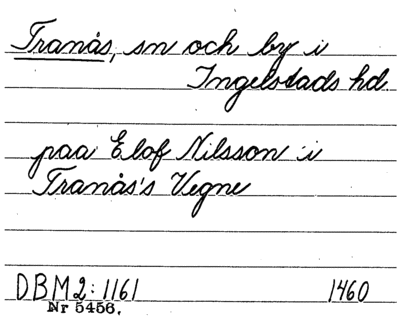 Tranås, sn och by i
Ingelstads hd
paa Elof Nilsson i
Tranås's Vegne
DBM2: 1161 1460
Nr 5456.